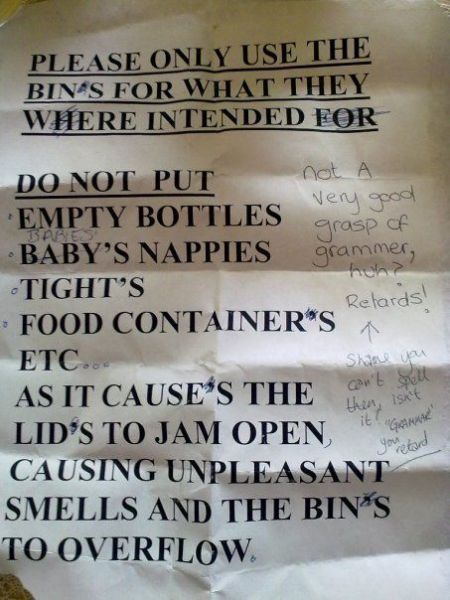 PLEASE ONLY USE THE
BIN'S FOR WHAT THEY
WHERE INTENDED FOR
DO NOT PUT
EMPTY BOTTLES
BABIES'
BABY'S NAPPIES
TIGHT'S
FOOD CONTAINER'S
ETC...
AS IT CAUSE'S THE
LID'S TO JAM OPEN,
CAUSING UNPLEASANT
SMELLS AND THE BIN'S
TO OVERFLOW.
not A
very good
grasp of
grammer,
huh?
Retards!
Shame you
can't spell
then, isn't
it? "GRAMMAR"
you
retard